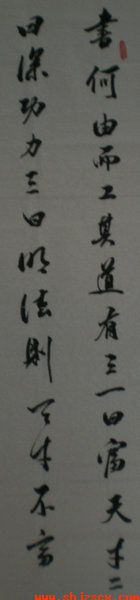 書何由而工其道有三一曰富天才二
曰深功力三曰明法則天才不富
www.shjzscx.com